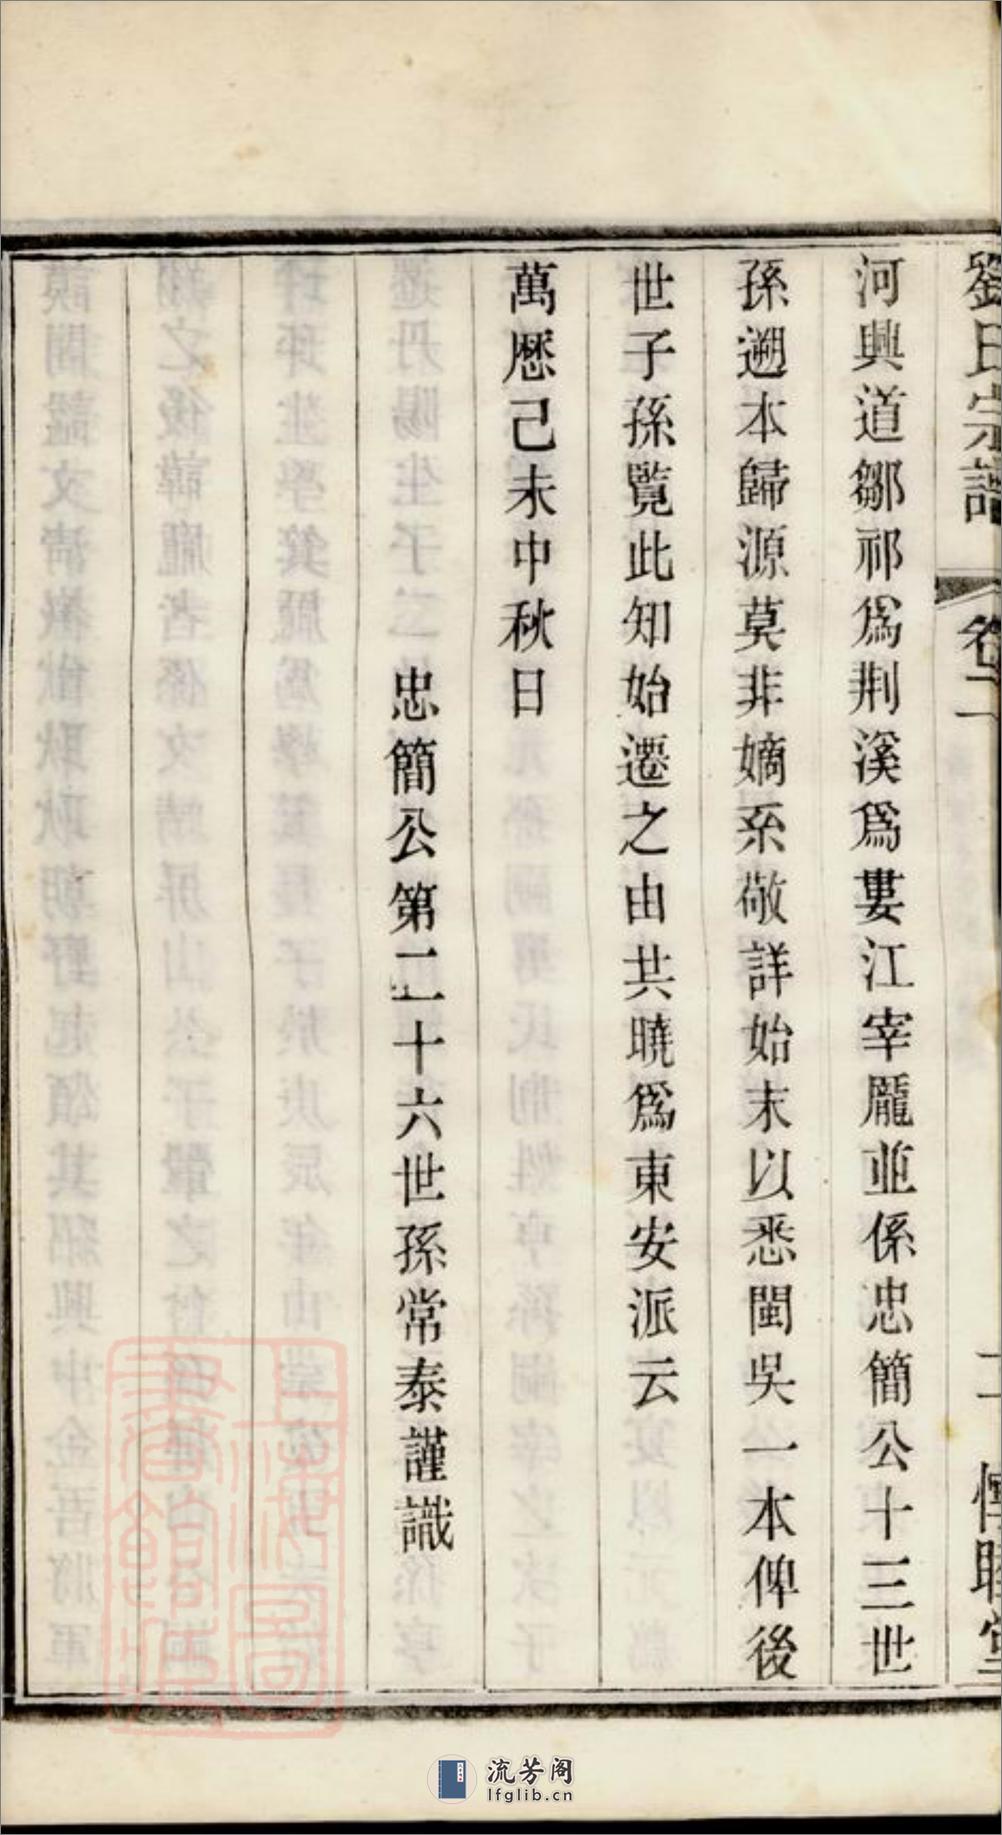 劉氏宗譜 卷二 二 惇睦堂
河興道鄒祁爲荆溪爲婁江宰龎並係忠簡公十三世
孫遡本歸源莫非嫡系敬詳始末以悉閩吳一本俾後
世子孫覽此知始遷之由共曉爲東安派云
萬歷己未中秋日
忠簡公第二十六世孫常泰謹識
上海圖書館藏
流芳阁
lfglib.cn